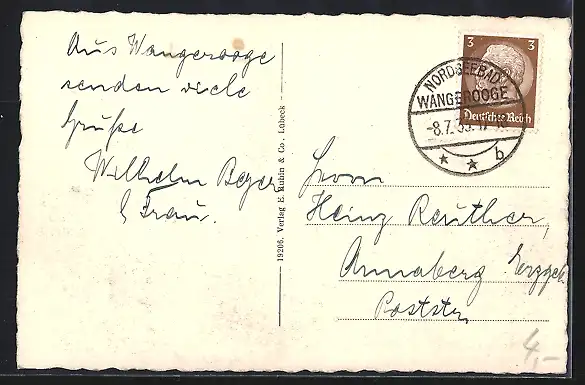 Aus Wangerooge
senden viele
Grüße
Wilhelm Beyer
& Frau.
19206. Verlag E. Rubin & Co., Lübeck
3 3
Deutsches Reich
NORDSEEBAD
WANGEROOGE
-8.7.
* * b
Herrn
Heinz Reuther,
Annaberg Erzgeb
Poststr.
4,-